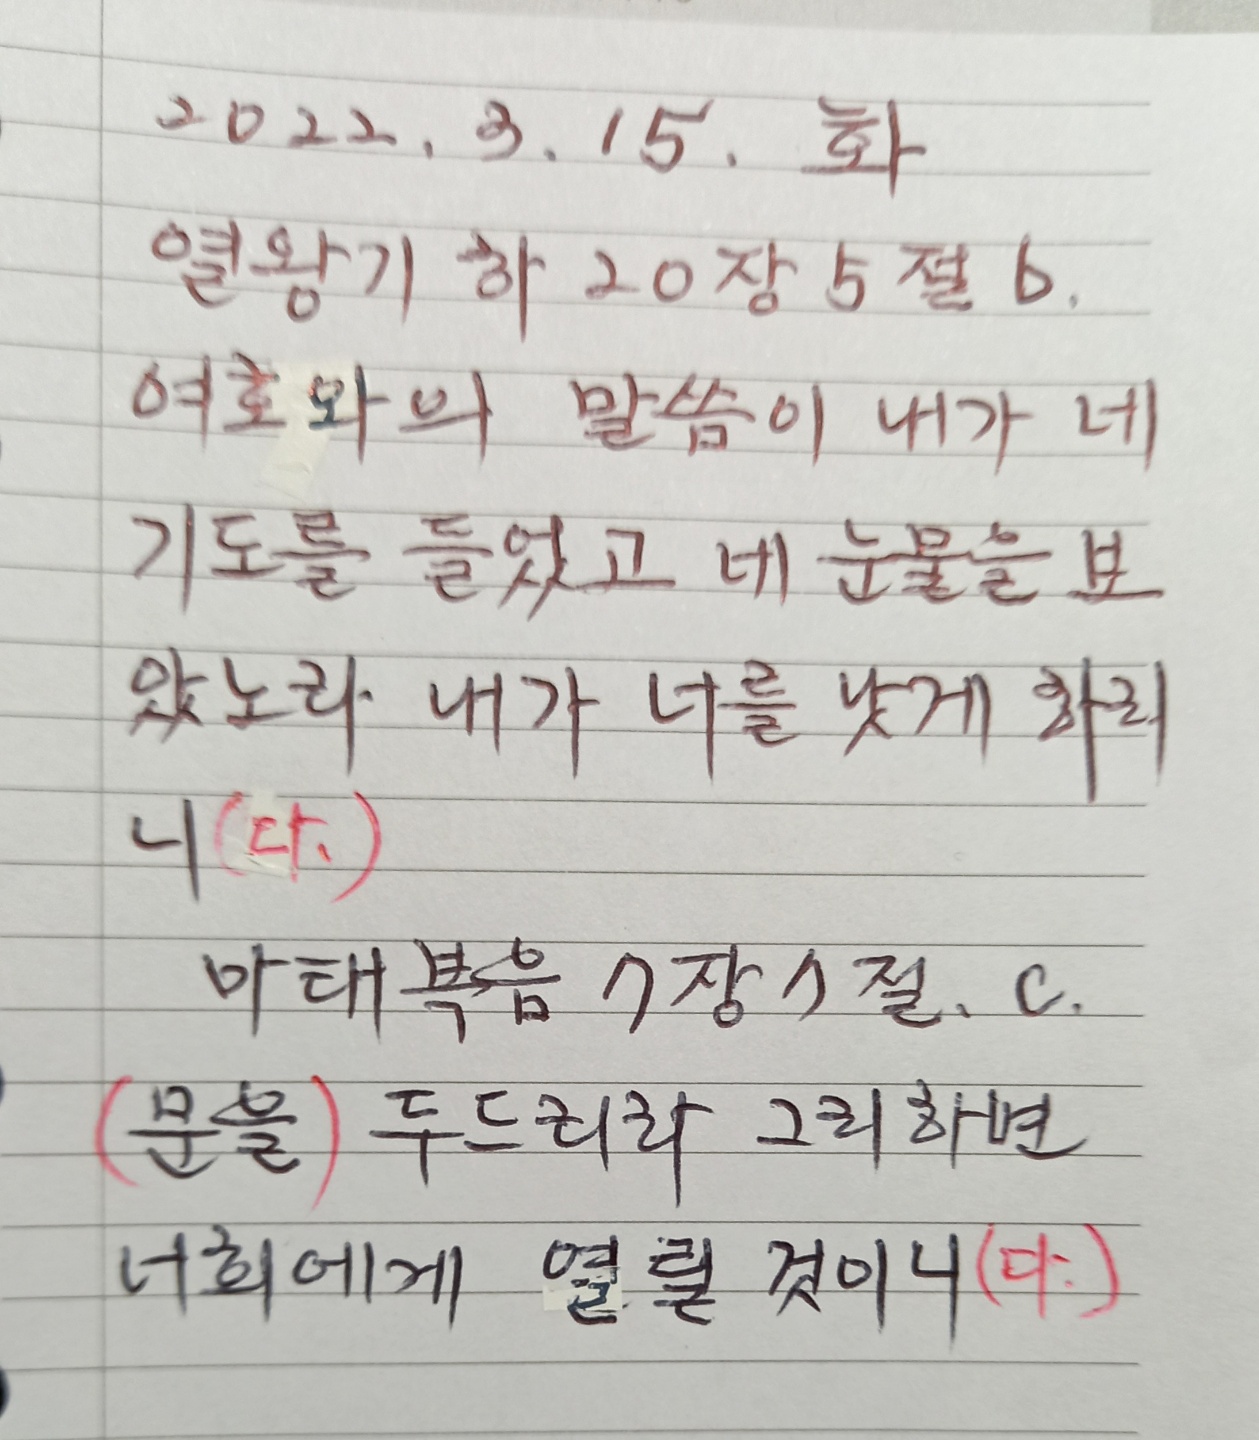 2022. 3. 15. 화
열왕기 하 20장 5절 b.
여호와의 말씀이 내가 네
기도를 들었고 네 눈물을 보
았노라 내가 너를 낫게 하리
니(다.)
마태복음 7장 7절. c.
(문을) 두드리라 그리하면
너희에게 열릴 것이니(다.)